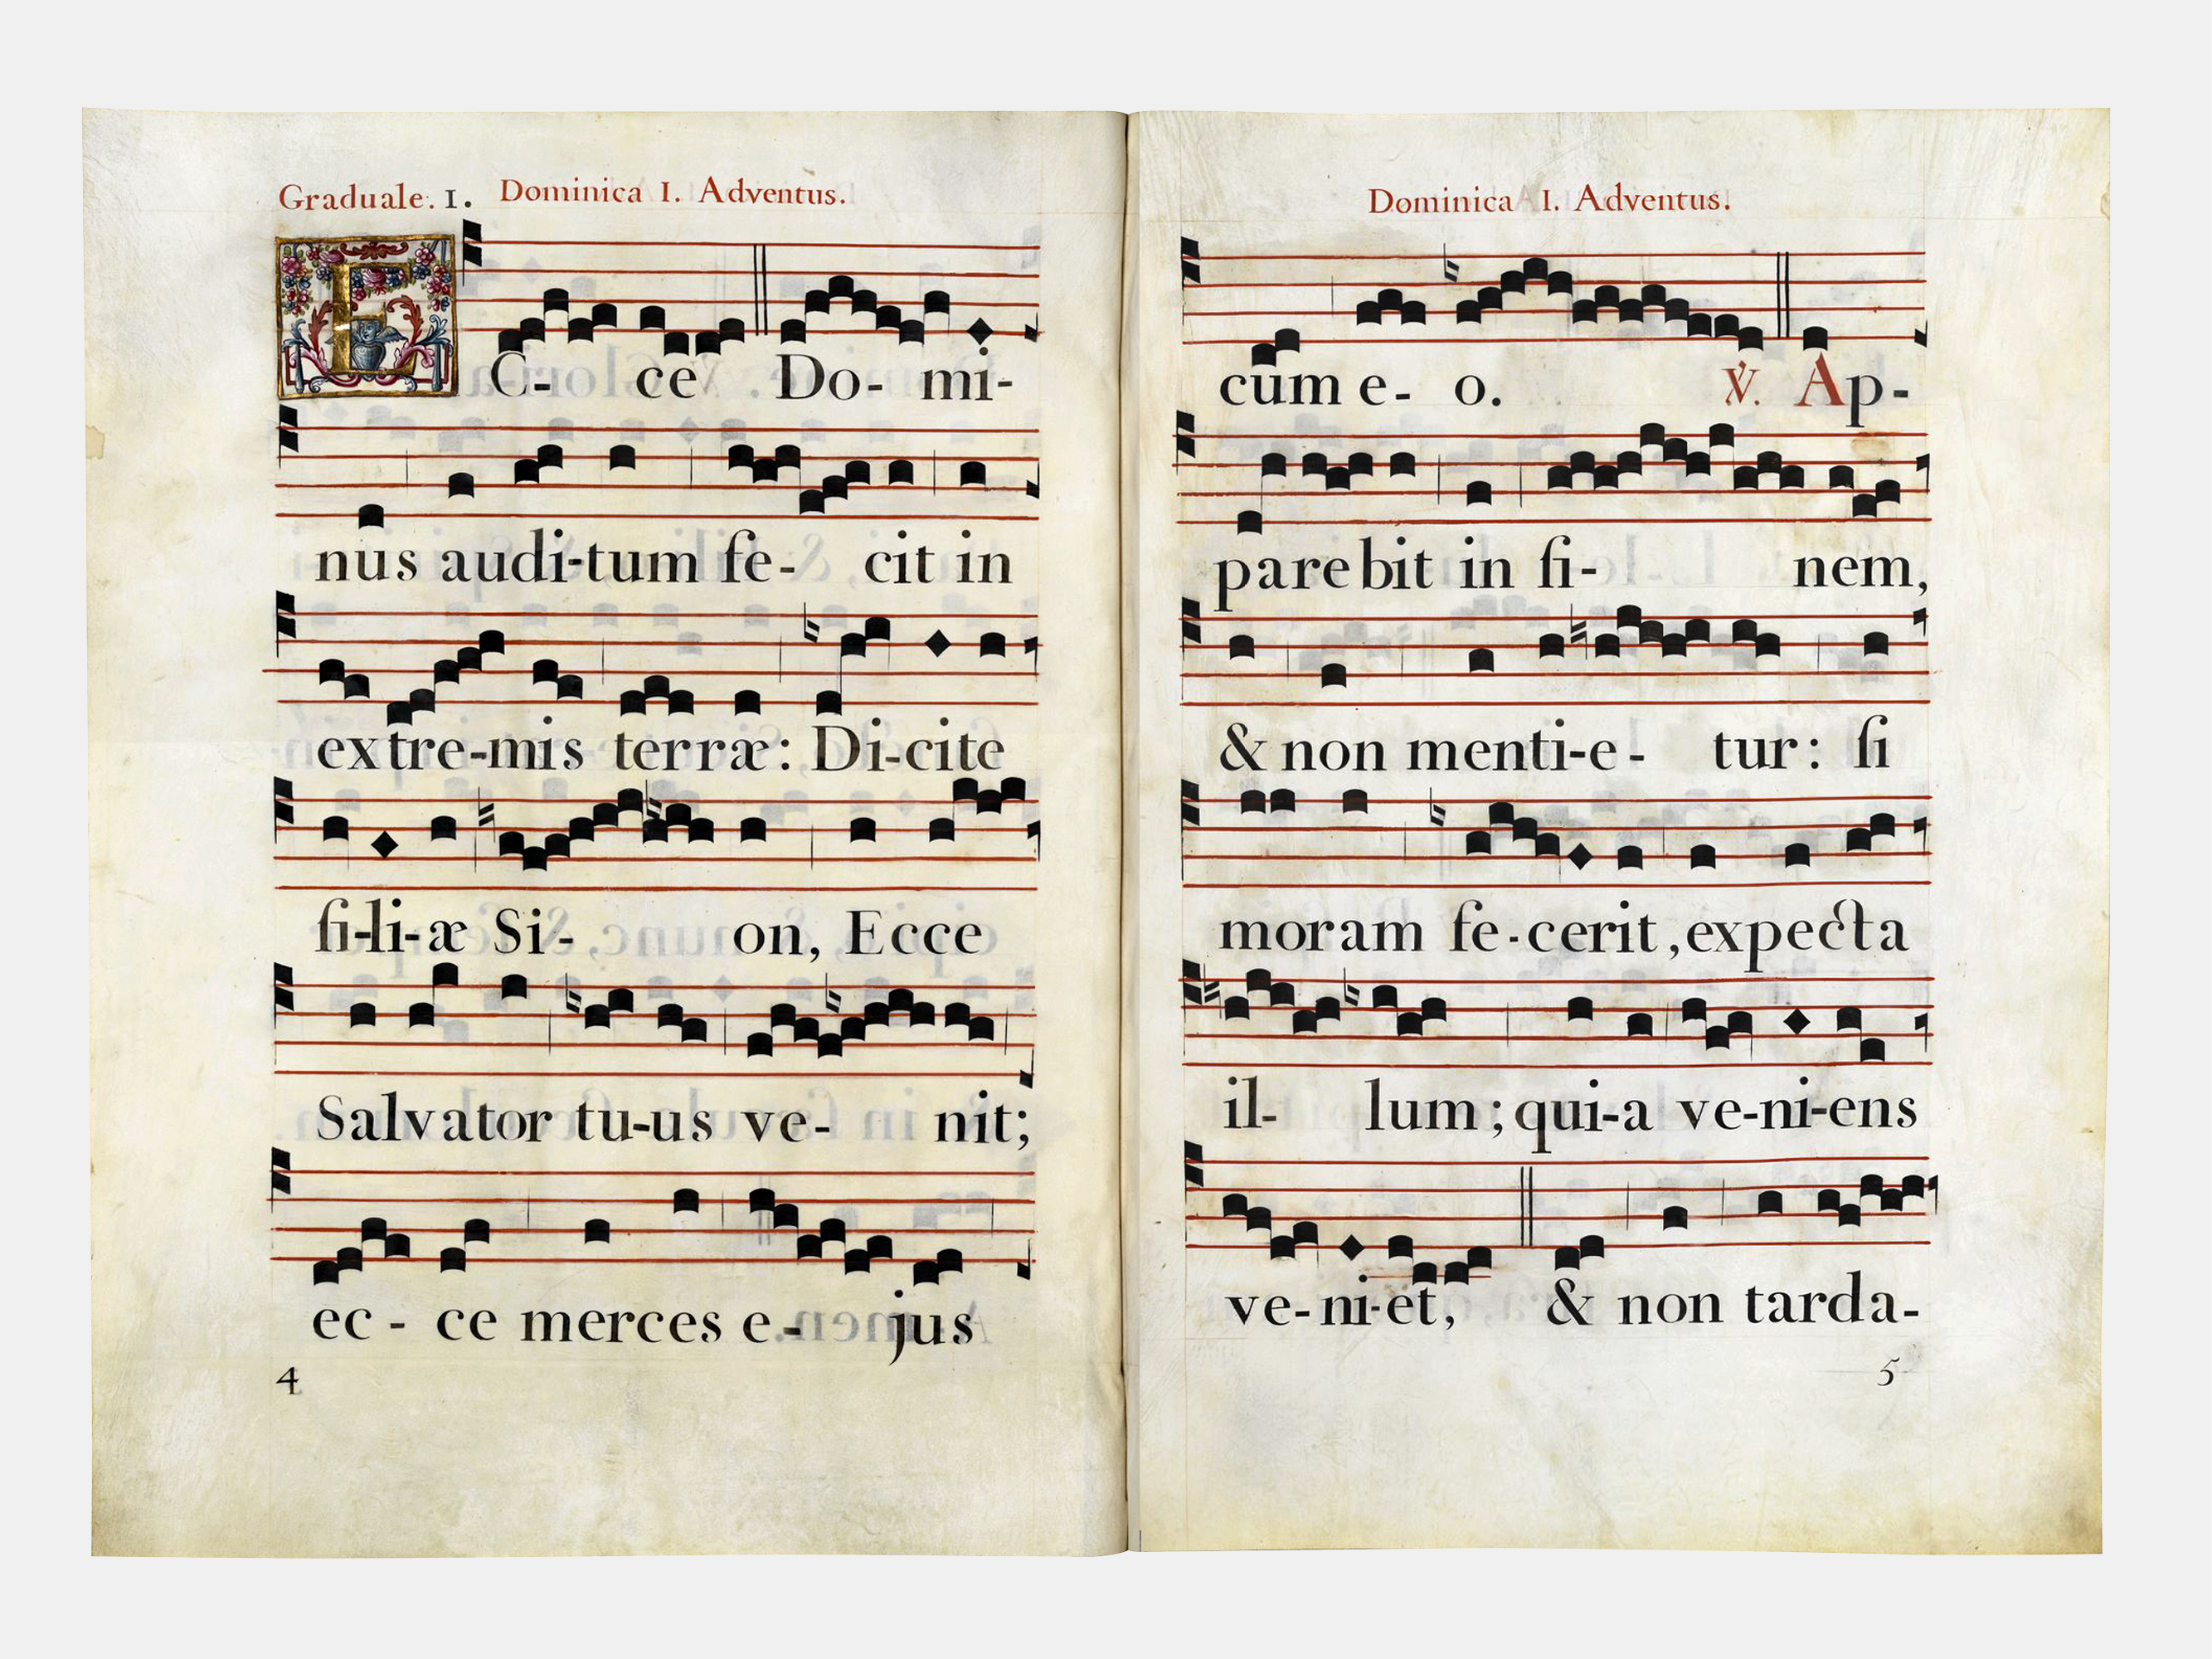 Graduale. 1. Dominica 1. Adventus.
EC- ce Do- mi-
nus audi-tum fe- cit in
extre-mis terræ: Di-cite
fi-li-æ Si- on, Ecce
Salvator tu-us ve- nit;
ec - ce merces e - jus
4
Dominica 1. Adventus.
cum e- o. ℣. Ap-
parebit in fi- nem,
& non menti-e- tur: ſi
moram fe-cerit, expecta
il- lum; qui-a ve-ni-ens
ve-ni-et, & non tarda-
5